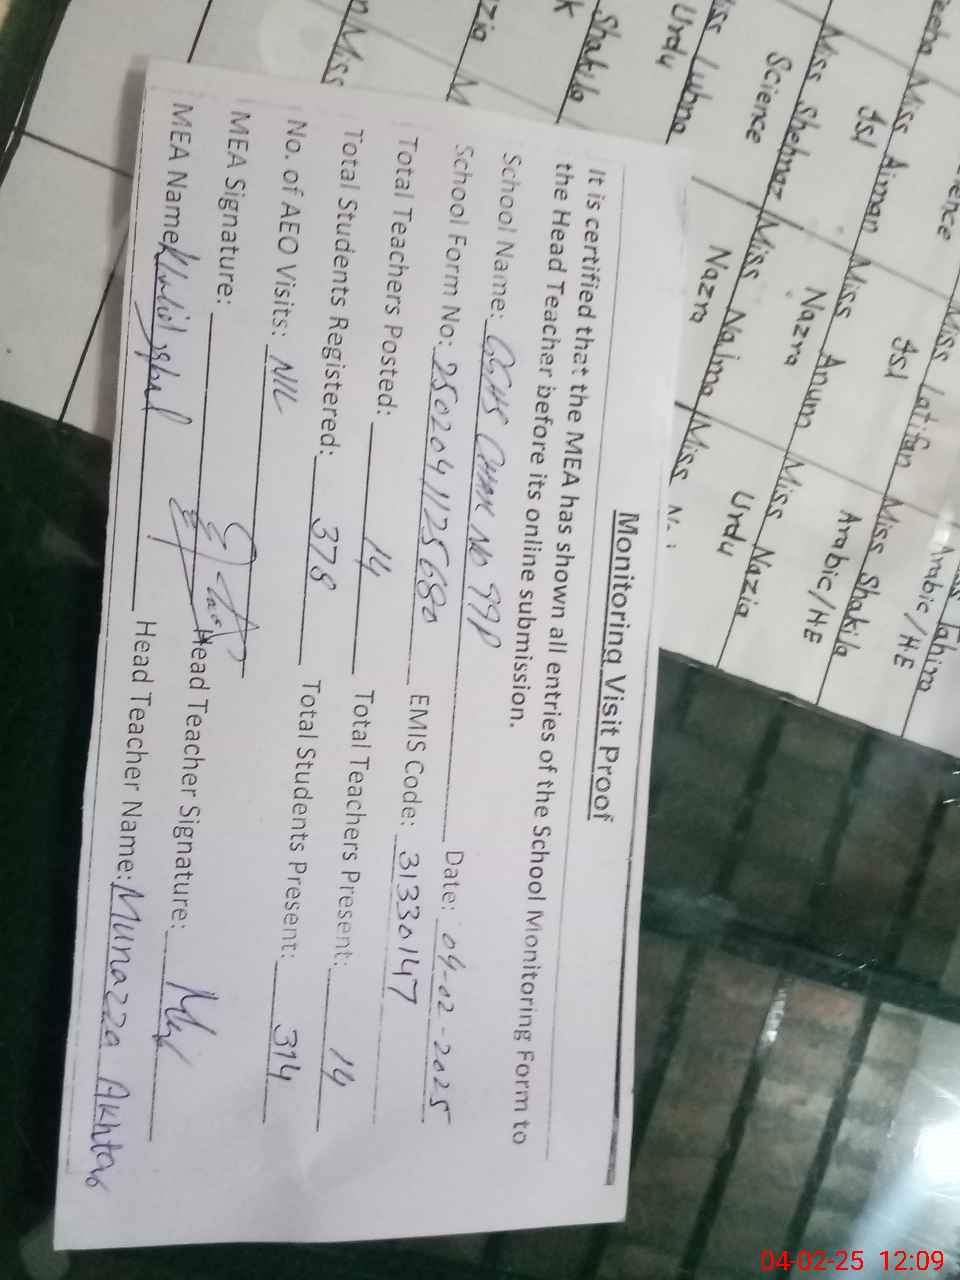 Monitoring Visit Proof
It is certified that the MEA has shown all entries of the School Monitoring Form to
the Head Teacher before its online submission.
School Name: GGHS CHAK No 99P Date: 04-02-2025
School Form No: 2502041125680 EMIS Code: 31330147
Total Teachers Posted: 14 Total Teachers Present: 14
Total Students Registered: 378 Total Students Present: 314
No. of AEO Visits: NIL
MEA Signature: Head Teacher Signature:
MEA Name: Khalid Iqbal Head Teacher Name: Munazza Akhtar
Arabic/HE
Miss Latifan
Isl
Miss Aiman Miss Shakila
Isl Arabic/HE
Miss Shehnaz Miss Anum
Science Nazra
Miss Lubna Miss Naima Miss Nazia
Urdu Nazra Urdu
Shakila Miss
Nazia
Miss
Miss Tahira
Arabic/HE
04-02-25 12:09